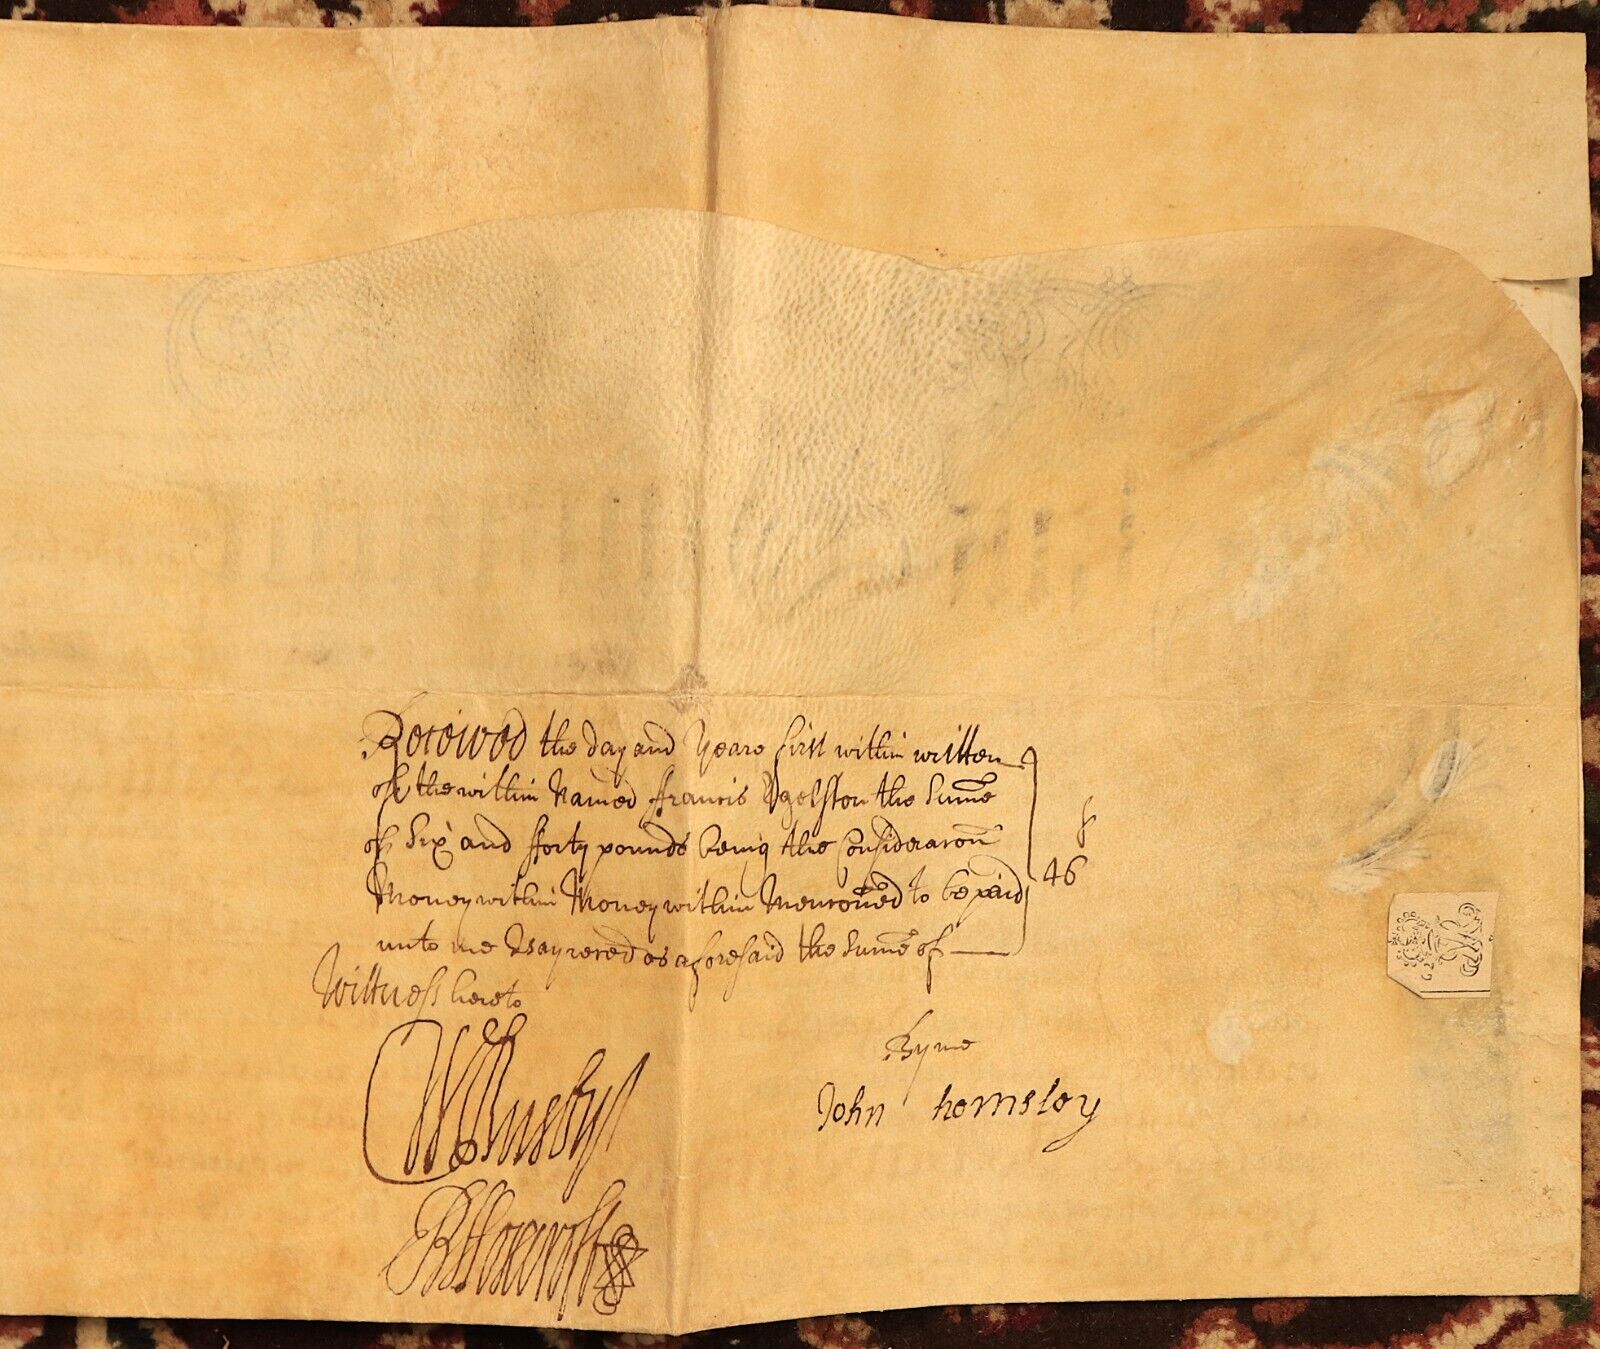 Received the day and Yeare first within written
of the within Named ffrancis Egelston the Sume
of Six and fforty pounds being the Consideracon
Money within Money within Menconed to be paid
unto me as aforesaid the Sume of
46
Wittness hereto
By me
John hemsley